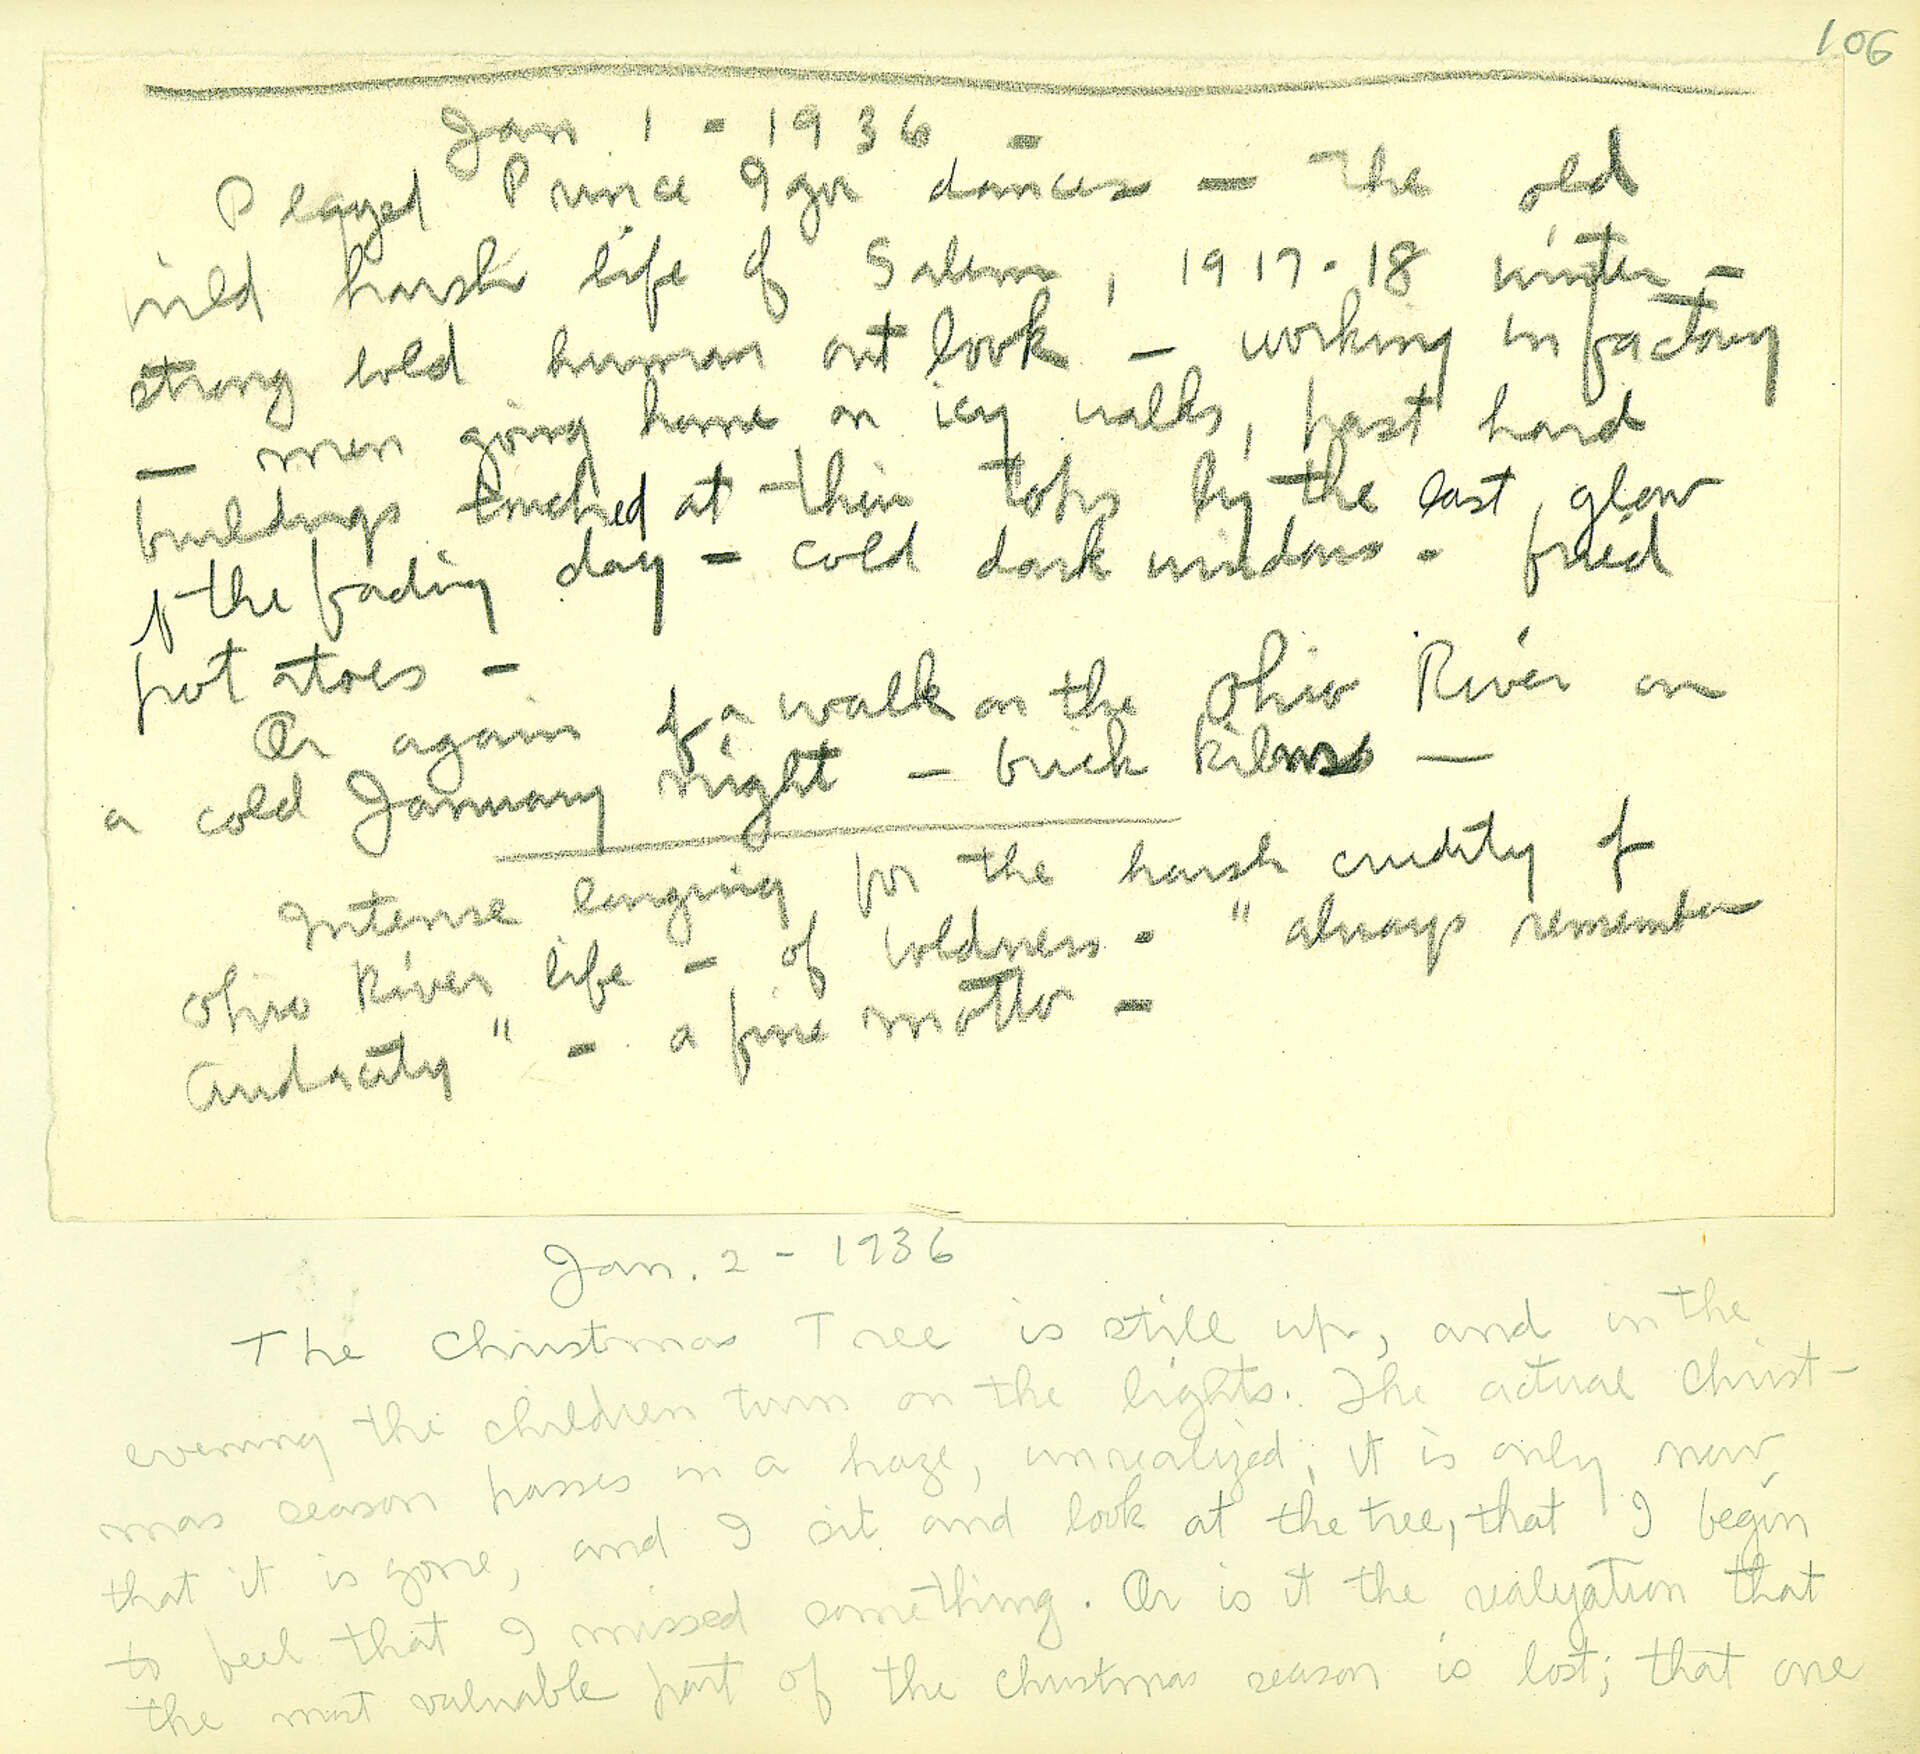 106
Jan 1 - 1936 -
Played Prince Igor dances — The old
wild harsh life of Salem, 1917-18 winter -
strong bold human outlook — working in factory
— men going home on icy walks, past hard
buildings touched at their tops by the last glow
of the fading day - cold dark windows - fried
potatoes -
Or again of a walk on the Ohio River on
a cold January night - brick kilns —
Intense longing for the harsh crudity of
Ohio River life - of boldness - "always remember
Audacity" - a fine motto -
Jan. 2 - 1936
The Christmas Tree is still up, and in the
evening the children turn on the lights. The actual Christ-
mas season passes in a haze, unrealized; it is only now
that it is gone, and I sit and look at the tree, that I begin
to feel that I missed something. Or is it the realization that
the most valuable part of the Christmas season is lost; that one